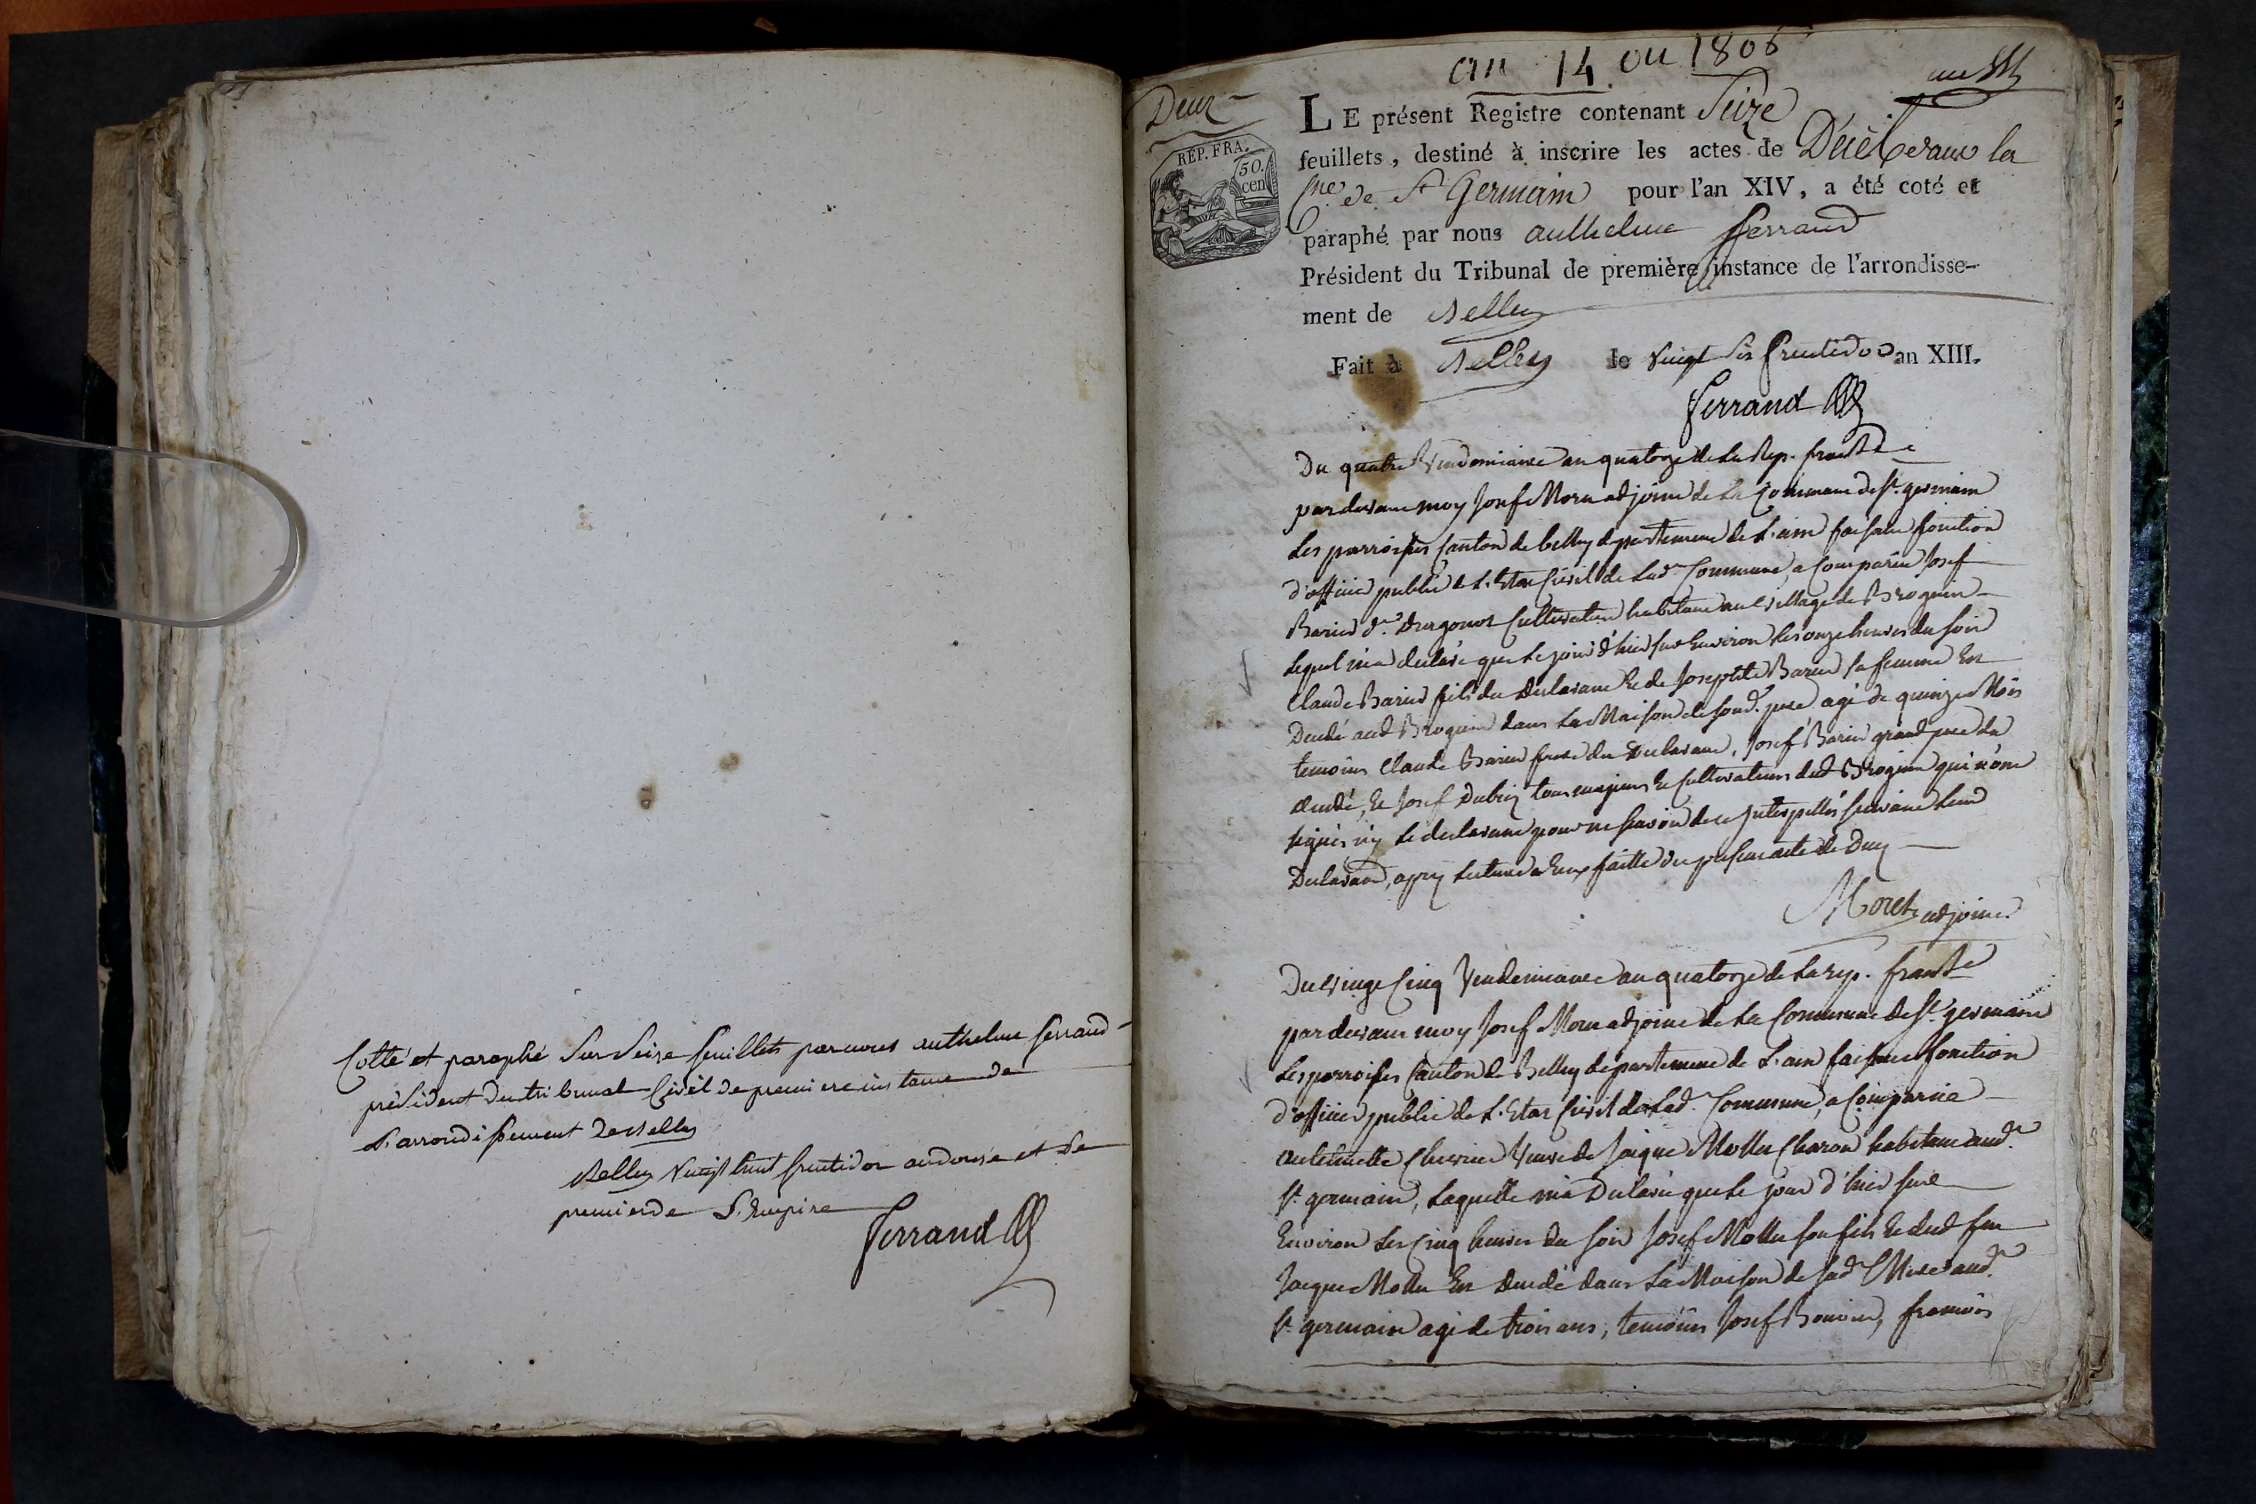 Cotté et paraphé Sur Seize feuillets par nous anthelme ferrand
président du tribunal Civil de premiere instance de
L'arrondissement de Belley
Belley Vingt huit fructidor an douze et de
premier de L'Empire
Ferrand
an 14 ou 1806
Deux
REP. FRA.
50.
cen
LE présent Registre contenant Seize
feuillets, destiné à inscrire les actes de Décès dans la
Cne de St Germain pour l'an XIV, a été coté et
paraphé par nous anthelme ferrand
Président du Tribunal de première instance de l'arrondisse-
ment de Belley
Fait à Belley le Vingt Six fructidor an XIII.
Ferrand
Du quatre Vendemiaire an quatorze de La Rep. franse
pardevant moy Josef Moret adjoint de La Commune de St. germain
Les parroisses Canton de belley departement de L'ain faisant fonction
d'officier public de L'Etat Civil de Lade Commune, a Comparu Josef
Barier dt. Dragonot Cultivateur habitant au village de Brognin
Lequel m'a declaré que Le jour d'hier sur Environ Les onze heures du soir
Claude Barier fils du declarant Et de Josephte Barier sa femme Est
Decedé aud Brognin dans La Maison de sond. pere agé de quinze Mois
temoins Claude Barier frere du Declarant, Josef Barier grand pere du
decedé, Et Josef Dubin tous majeurs Et Cultivateurs dud Brognin qui n'ont
signés ny Le declarant pour ne savoir de ce Interpellés suivant Leur
Declarant, apres Lecture a Eux faitte du present acte de Decy
Moret adjoint
Du vingt Cinq Vendemiaire an quatorze de La rep. franse
pardevant moy Josef Moret adjoint de La Commune de St. germain
Les parroisses Canton de Belley departement de L'ain faisant fonction
d'officier public de L'Etat Civil de Lad. Commune, a Comparue
Veuve de Jaique Mollu Charon habitant aud.
St. germain, Laquelle m'a Declaré que Le jour d'hier sur
Environ Les Cinq heures du soir Josef Mollu son fils Et dud feu
Jacque Mollu Est decedé dans La Maison de sad. Mere aud.
St. germain agé de trois ans, temoins Josef Bouvier, francois